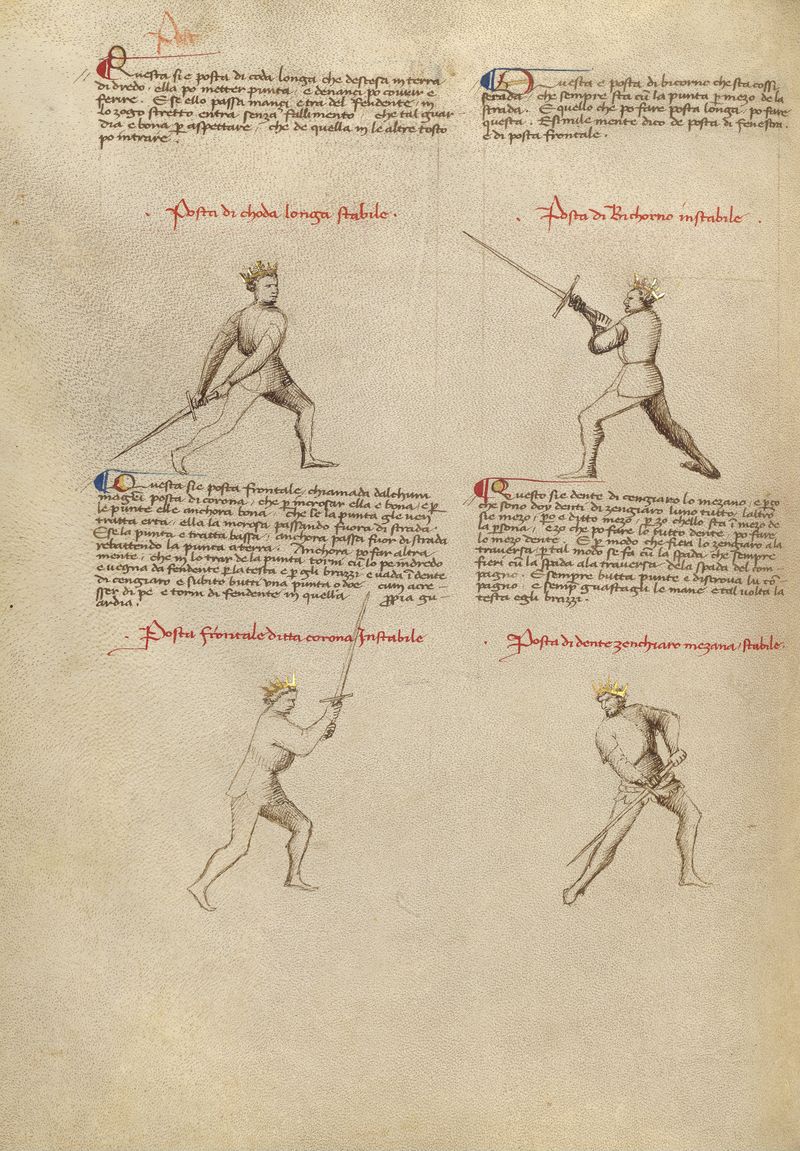 Questa sie posta di coda longa che destesa in terra
di dredo . ella po metter punta . e denanci po covrir e
ferire . E se ello passa inanci . e tra del fendente . in
lo zogo stretto entra senza fallimento . che tal guar
dia e bona p aspettare . che de quella in le altre tosto
po intrare .
. Posta di choda longa stabile .
Questa sie posta frontale . chiamada dalchun
magistri posta di corona . che p incrosar ella e bona . e p
le punte ell e anchora bona . che se la punta gle ven
tratta erta . ella la incrosa passando fuora di strada .
E se la punta e tratta bassa . anchora passa fuor di strada
rebattendo la punta a terra . Anchora po far altra
mente . che in lo trar de la punta torni cu lo pe indredo
e vegna da fendente p la testa e p gli brazzi e vada i dente
di cengiaro e subito butti una punta o doe cum acre
sser di pe e torni di fendente in quella ppia gu
ardia .
. Posta frontale ditta corona Instabile
Questa e posta di bicorno che sta cossi
serada . che sempre sta cu la punta p mezo de la
strada . E quello che po fare posta longa . po fare
questa . E similemente dico de posta di fenestra .
e di posta frontale .
. Posta di Bichorno instabile .
Questo sie dente di cengiaro lo mezano . e p zo
che sono doy denti di zengiaro luno tutto . laltro
sie mezo . po e ditto mezo . p zo chello sta i mezo de
la psona . e zo che po fare lo ditto dente . po fare
lo mezo dente . E p modo che fieri lo zengiaro a la
traversa . p tal modo se fa cu la spada . che sempre
fieri cu la spada a la traversa . de la spada del com
pagno . E sempre butta punte e discrova lu co
pagno . e semp guastagli le mane e tal volta la
testa e gli brazzi .
. Posta di dente zenchiaro mezana / stabile .